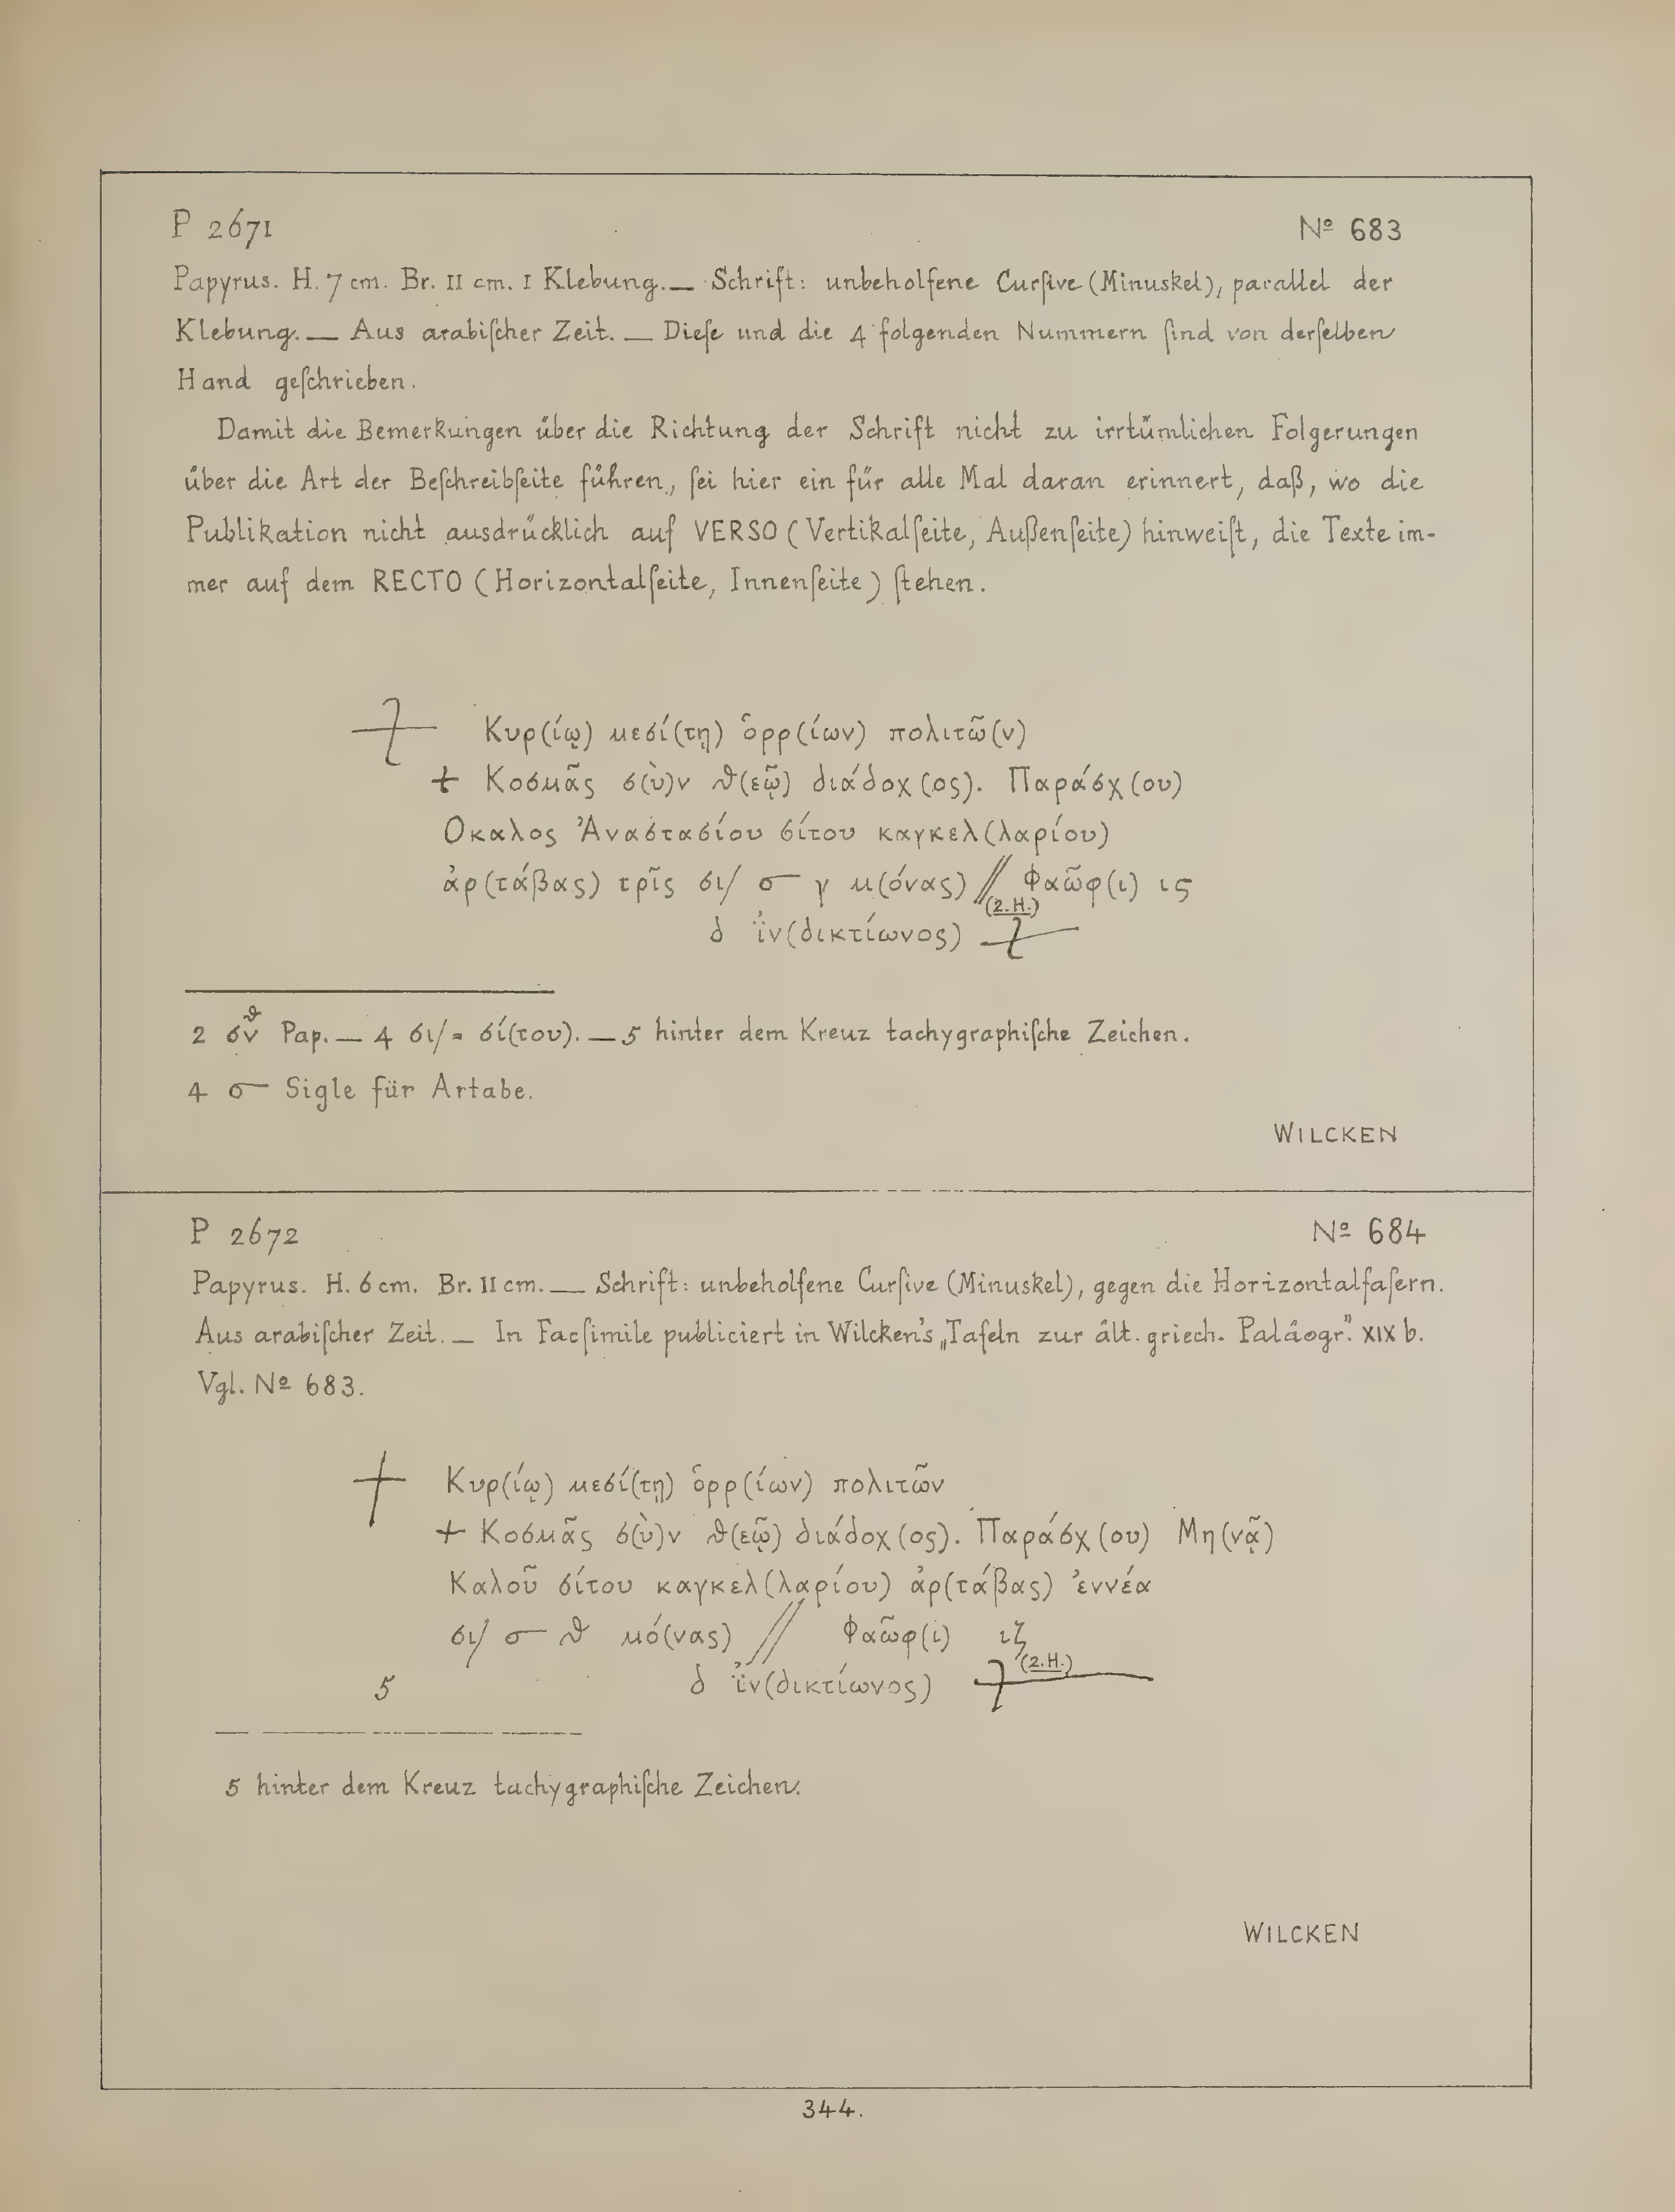 P 2671 Nº 683
Papyrus. H. 7 cm. Br. 11 cm. 1 Klebung. — Schrift: unbeholfene Curſive (Minuskel), parallel der
Klebung. — Aus arabiſcher Zeit. — Dieſe und die 4 folgenden Nummern ſind von derſelben
Hand geſchrieben.
Damit die Bemerkungen über die Richtung der Schrift nicht zu irrtümlichen Folgerungen
über die Art der Beſchreibſeite führen, ſei hier ein für alle Mal daran erinnert, daß, wo die
Publikation nicht ausdrücklich auf VERSO (Vertikalſeite, Außenſeite) hinweiſt, die Texte im-
mer auf dem RECTO (Horizontalſeite, Innenſeite) ſtehen.
Κυρ(ίῳ) μεσί(τῃ) ὁρρ(ίων) πολιτῶ(ν)
+ Κοσμᾶς σ(ὺ)ν θ(εῷ) διάδοχ(ος). Παράσχ(ου)
Οκαλος Ἀναστασίου σίτου καγκελ(λαρίου)
ἀρ(τάβας) τρῖς σι/ σ— γ μ(όνας) // Φαῶφ(ι) ις
δ ἰν(δικτίωνος) (2.H.) +
2 σν^θ Pap. — 4 σι/ = σί(του). — 5 hinter dem Kreuz tachygraphiſche Zeichen.
4 σ— Sigle für Artabe.
WILCKEN
P 2672 Nº 684
Papyrus. H. 6 cm. Br. 11 cm. — Schrift: unbeholfene Curſive (Minuskel), gegen die Horizontalfaſern.
Aus arabiſcher Zeit. — In Facſimile publiciert in Wilcken's „Tafeln zur ält. griech. Paläogr." XIX b.
Vgl. Nº 683.
+ Κυρ(ίῳ) μεσί(τῃ) ὁρρ(ίων) πολιτῶν
+ Κοσμᾶς σ(ὺ)ν θ(εῷ) διάδοχ(ος). Παράσχ(ου) Μη(νᾷ)
Καλοῦ σίτου καγκελ(λαρίου) ἀρ(τάβας) ἐννέα
σι/ σ— θ μό(νας) // Φαῶφ(ι) ιζ
5 δ ἰν(δικτίωνος) (2.H.) +
5 hinter dem Kreuz tachygraphiſche Zeichen.
WILCKEN
344.